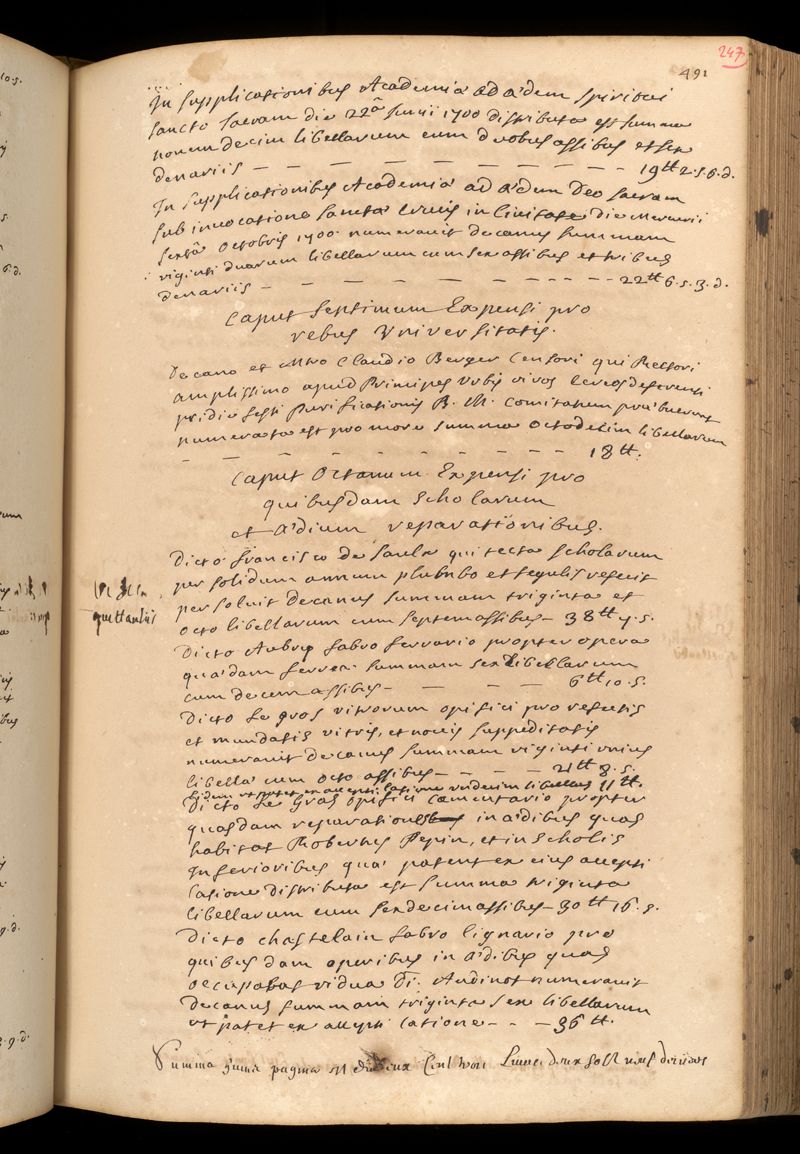 247
491
In supplicationibus Academiæ ad ædem spiritui
sancto sacram die 22â Junii 1700 distributa est summa
novemdecim libellarum cum duobus assibus et sex
denariis — — — — — — — — — 19tt 2.s.6.d.
In supplicationibus Academiæ ad ædem Deo sacram
sub invocatione sanctæ Crucis in Civitate die Mercurii
sextâ Octobris 1700 numeravit decanus summam
viginti duarum libellarum cum sex assibus et tribus
denariis — — — — — — — 22tt 6.s.3.d.
Caput Septimum Expensi pro
rebus Universitatis.
Decano et Mro Claudio Berger Censori qui Rectori
amplissimo apud Principes Urbis viros cereos deferenti
pridie festi Purificationis B. M. comitatum præbuerunt
numerata est pro more summa octodecim libellarum
— — — — — — — — 18tt.
Caput Octavum Expensi pro
quibusdam Scholarum
et Ædium reparationibus.
Dicto francisco de Saulx qui tecta scholarum
per solidum annum plumbo et tegulis refecit
persoluit decanus summam triginta et
octo libellarum cum septem assibus — 38tt 7.s.
quittantiis
Dicto Aubry fabro ferrario propter opera
quædam ferrea summam sex libellarum
cum decem assibus — — — — 6tt 10.s.
Dicto Le gros vitrorum opifici pro refectis
et mundatis vitris, et novis suppeditatis
numeravit decanus summam viginti unius
libellæ cum octo assibus — — — — 21tt 8.s.
Eidem ut patet ex accepti latione undecim libellas 11tt.
Dicto Le Gras opifici cæmentario propter
quasdam reparationes in ædibus quas
habitat Robertus Pepin, et in scholis
Inferioribus quæ patent ex eius accepti
latione distributa est summa triginta
libellarum cum sexdecim assibus — 30tt 16.s.
Dicto chastelain fabro lignario pro
quibusdam operibus in ædibus quas
occupabat vidua D. Audinot numeravit
decanus summam triginta sex libellarum
ut patet ex accepti latione — — — 36tt.
Summa huius paginæ est deux Cent trois Livres deux sols neuf deniers